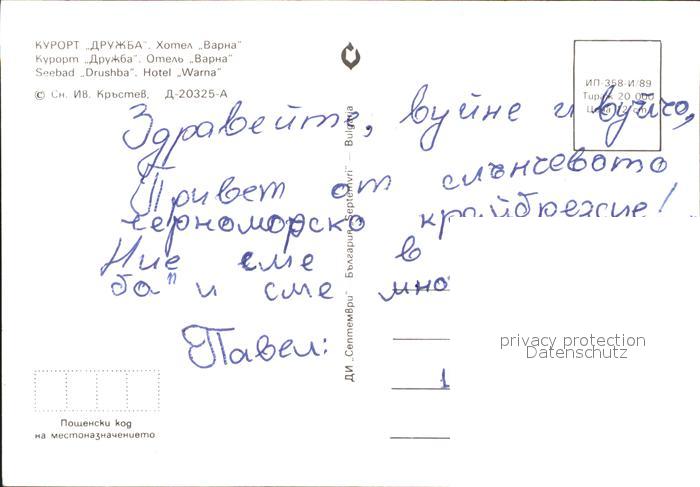 КУРОРТ „ДРУЖБА". Хотел „Варна"
Курорт „Дружба". Отель „Варна"
Seebad „Drushba". Hotel „Warna"
© Сн. Ив. Кръстев. Д-20325-А
ИП-358-И/89
Тираж 20 000
Цена
Здравейте, вуйне и вуйчо,
Привет от слънчевото
черноморско крайбрежие!
Ние сме в
ба" и сме мно
Павел:
ДИ „Септември" България „Septemvri" — Bulgaria
1
privacy protection
Datenschutz
Пощенски код
на местоназначението